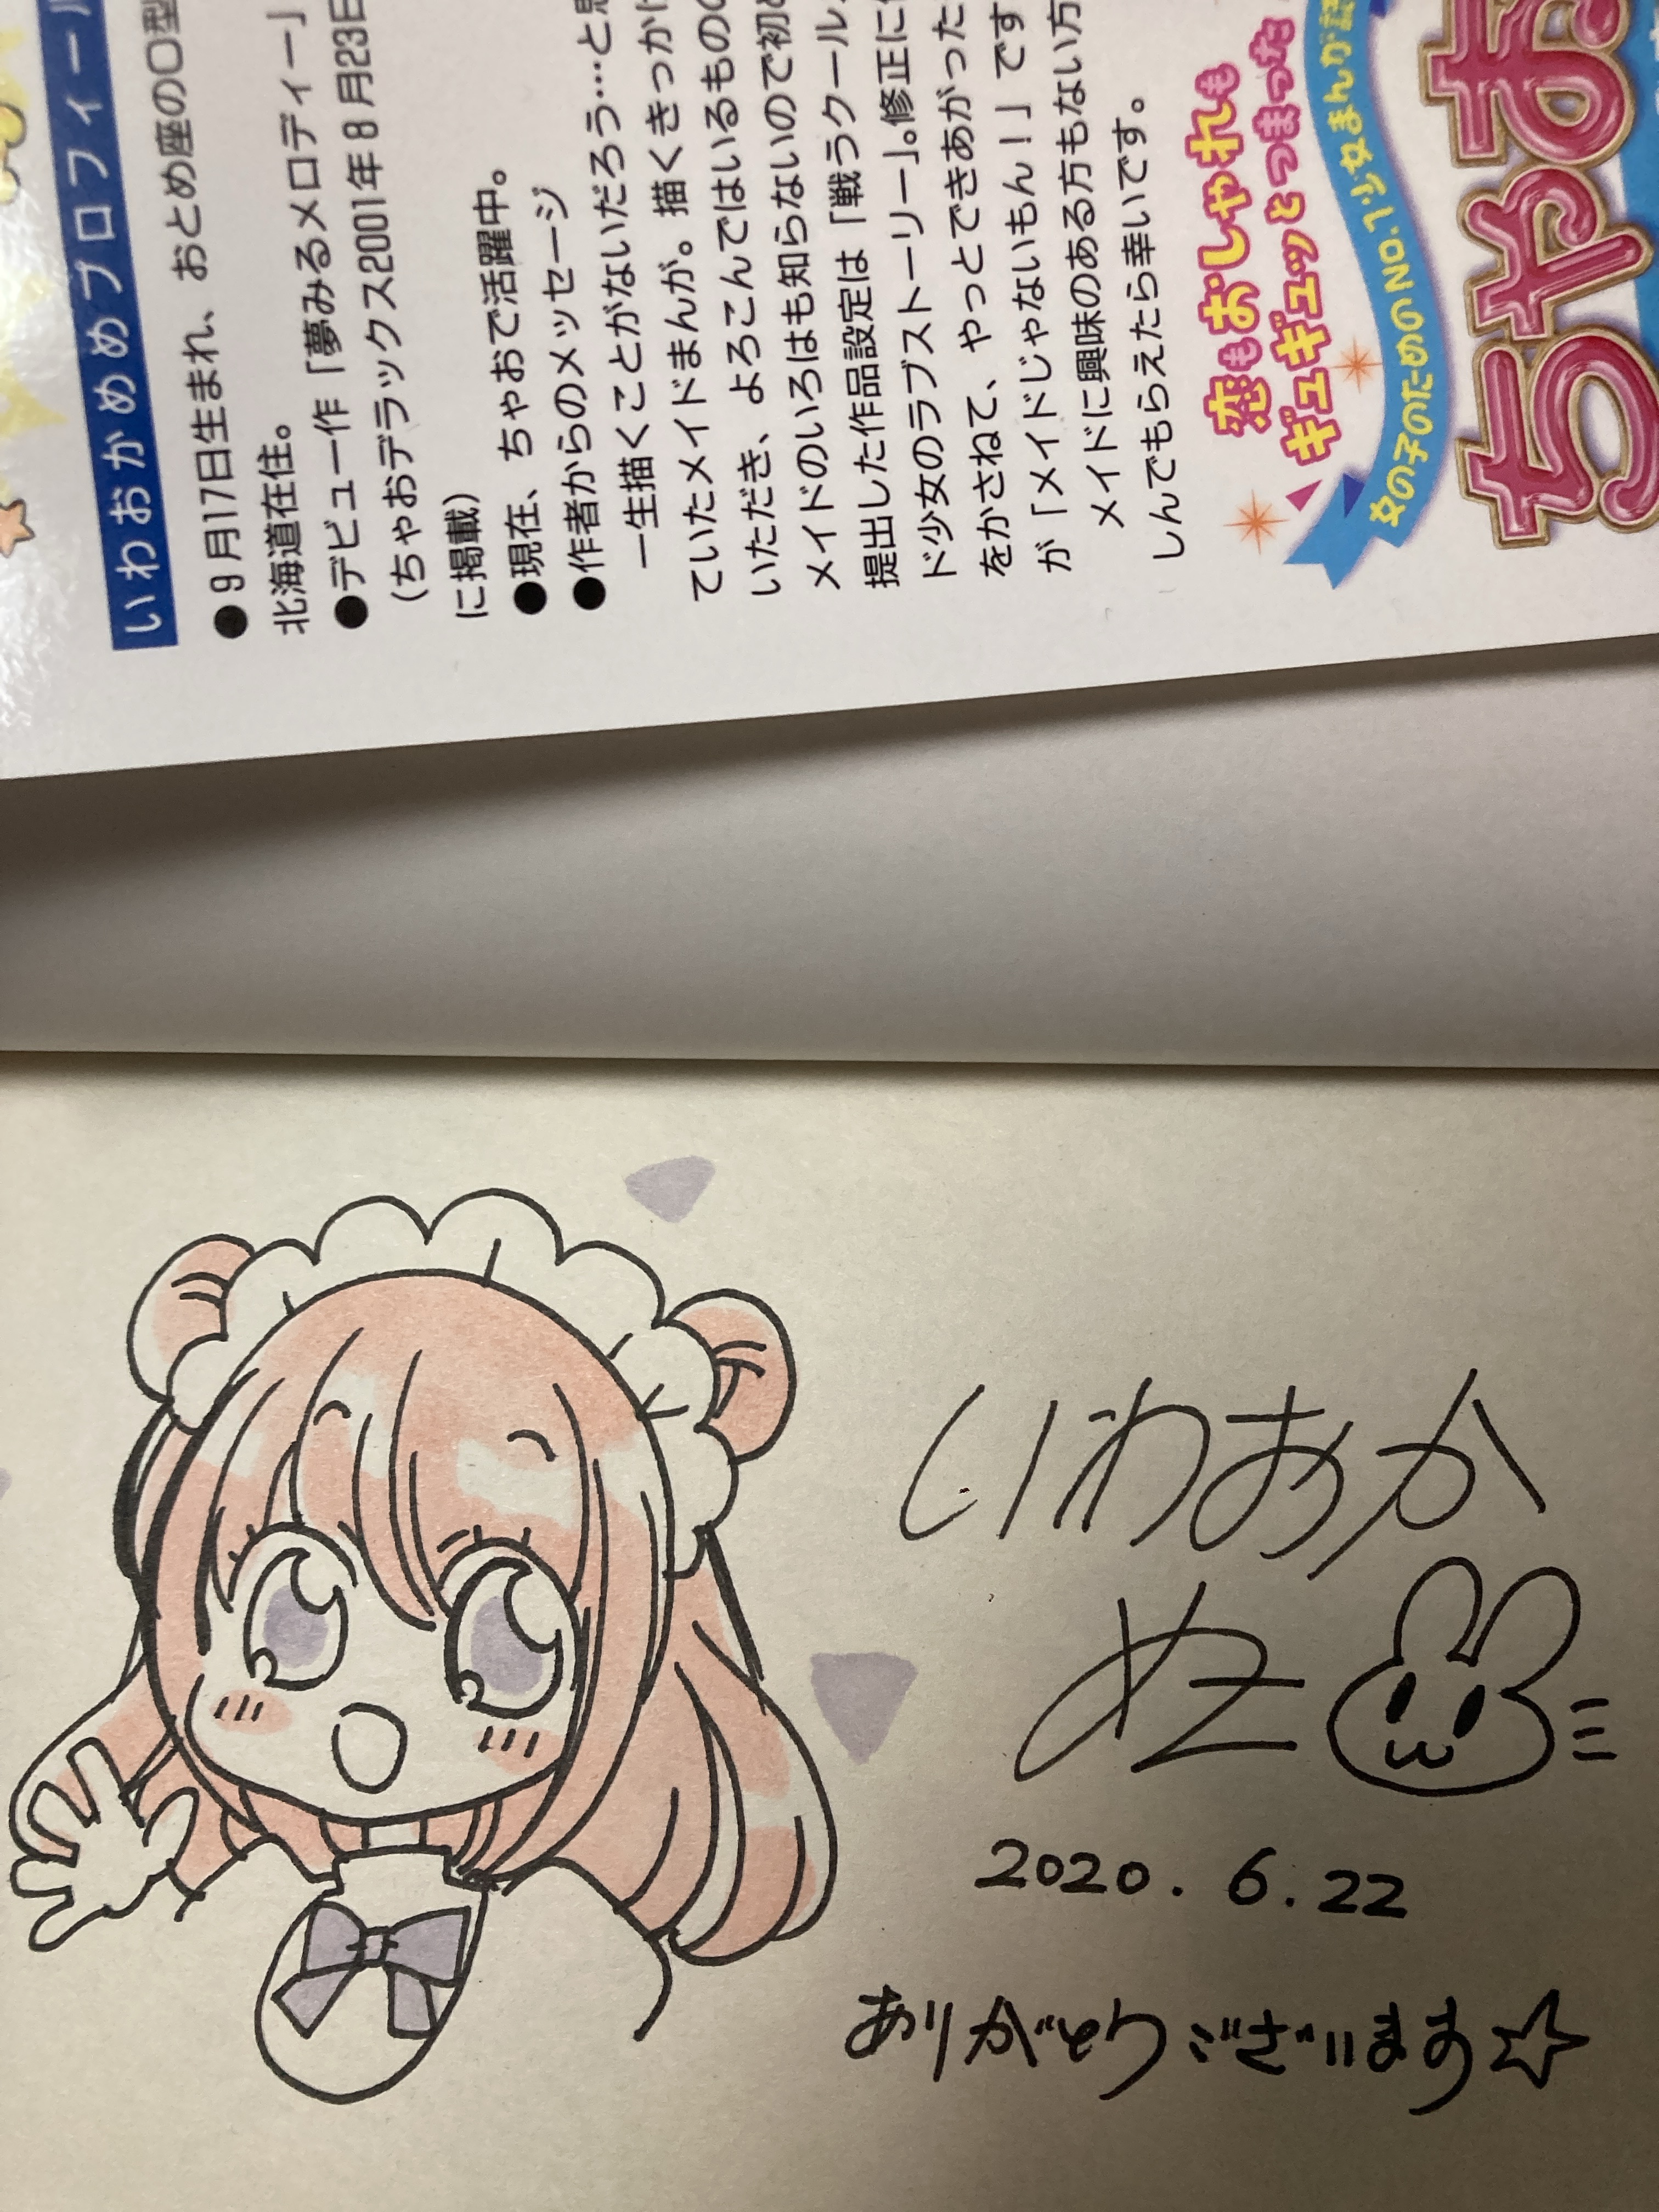 いわおかめめプロフィール
●9月17日生まれ、おとめ座のO型
北海道在住。
●デビュー作「夢みるメロディー」
(ちゃおデラックス2001年8月23日
に掲載)
●現在、ちゃおで活躍中。
●作者からのメッセージ
一生描くことがないだろう…と思
ていたメイドまんが。描くきっかけ
いただき、よろこんではいるものの
メイドのいろはも知らないので初め
提出した作品設定は「戦うクール
ド少女のラブストーリー」。修正に
をかさねて、やっとできあがった
が「メイドじゃないもん!」です
メイドに興味のある方もない方
しんでもらえたら幸いです。
恋もおしゃれも
ギュギュッとつまった
女の子のためのNO.1少女まんが誌
ちゃお
いわおか
めめ
2020.6.22
ありがとうございます☆